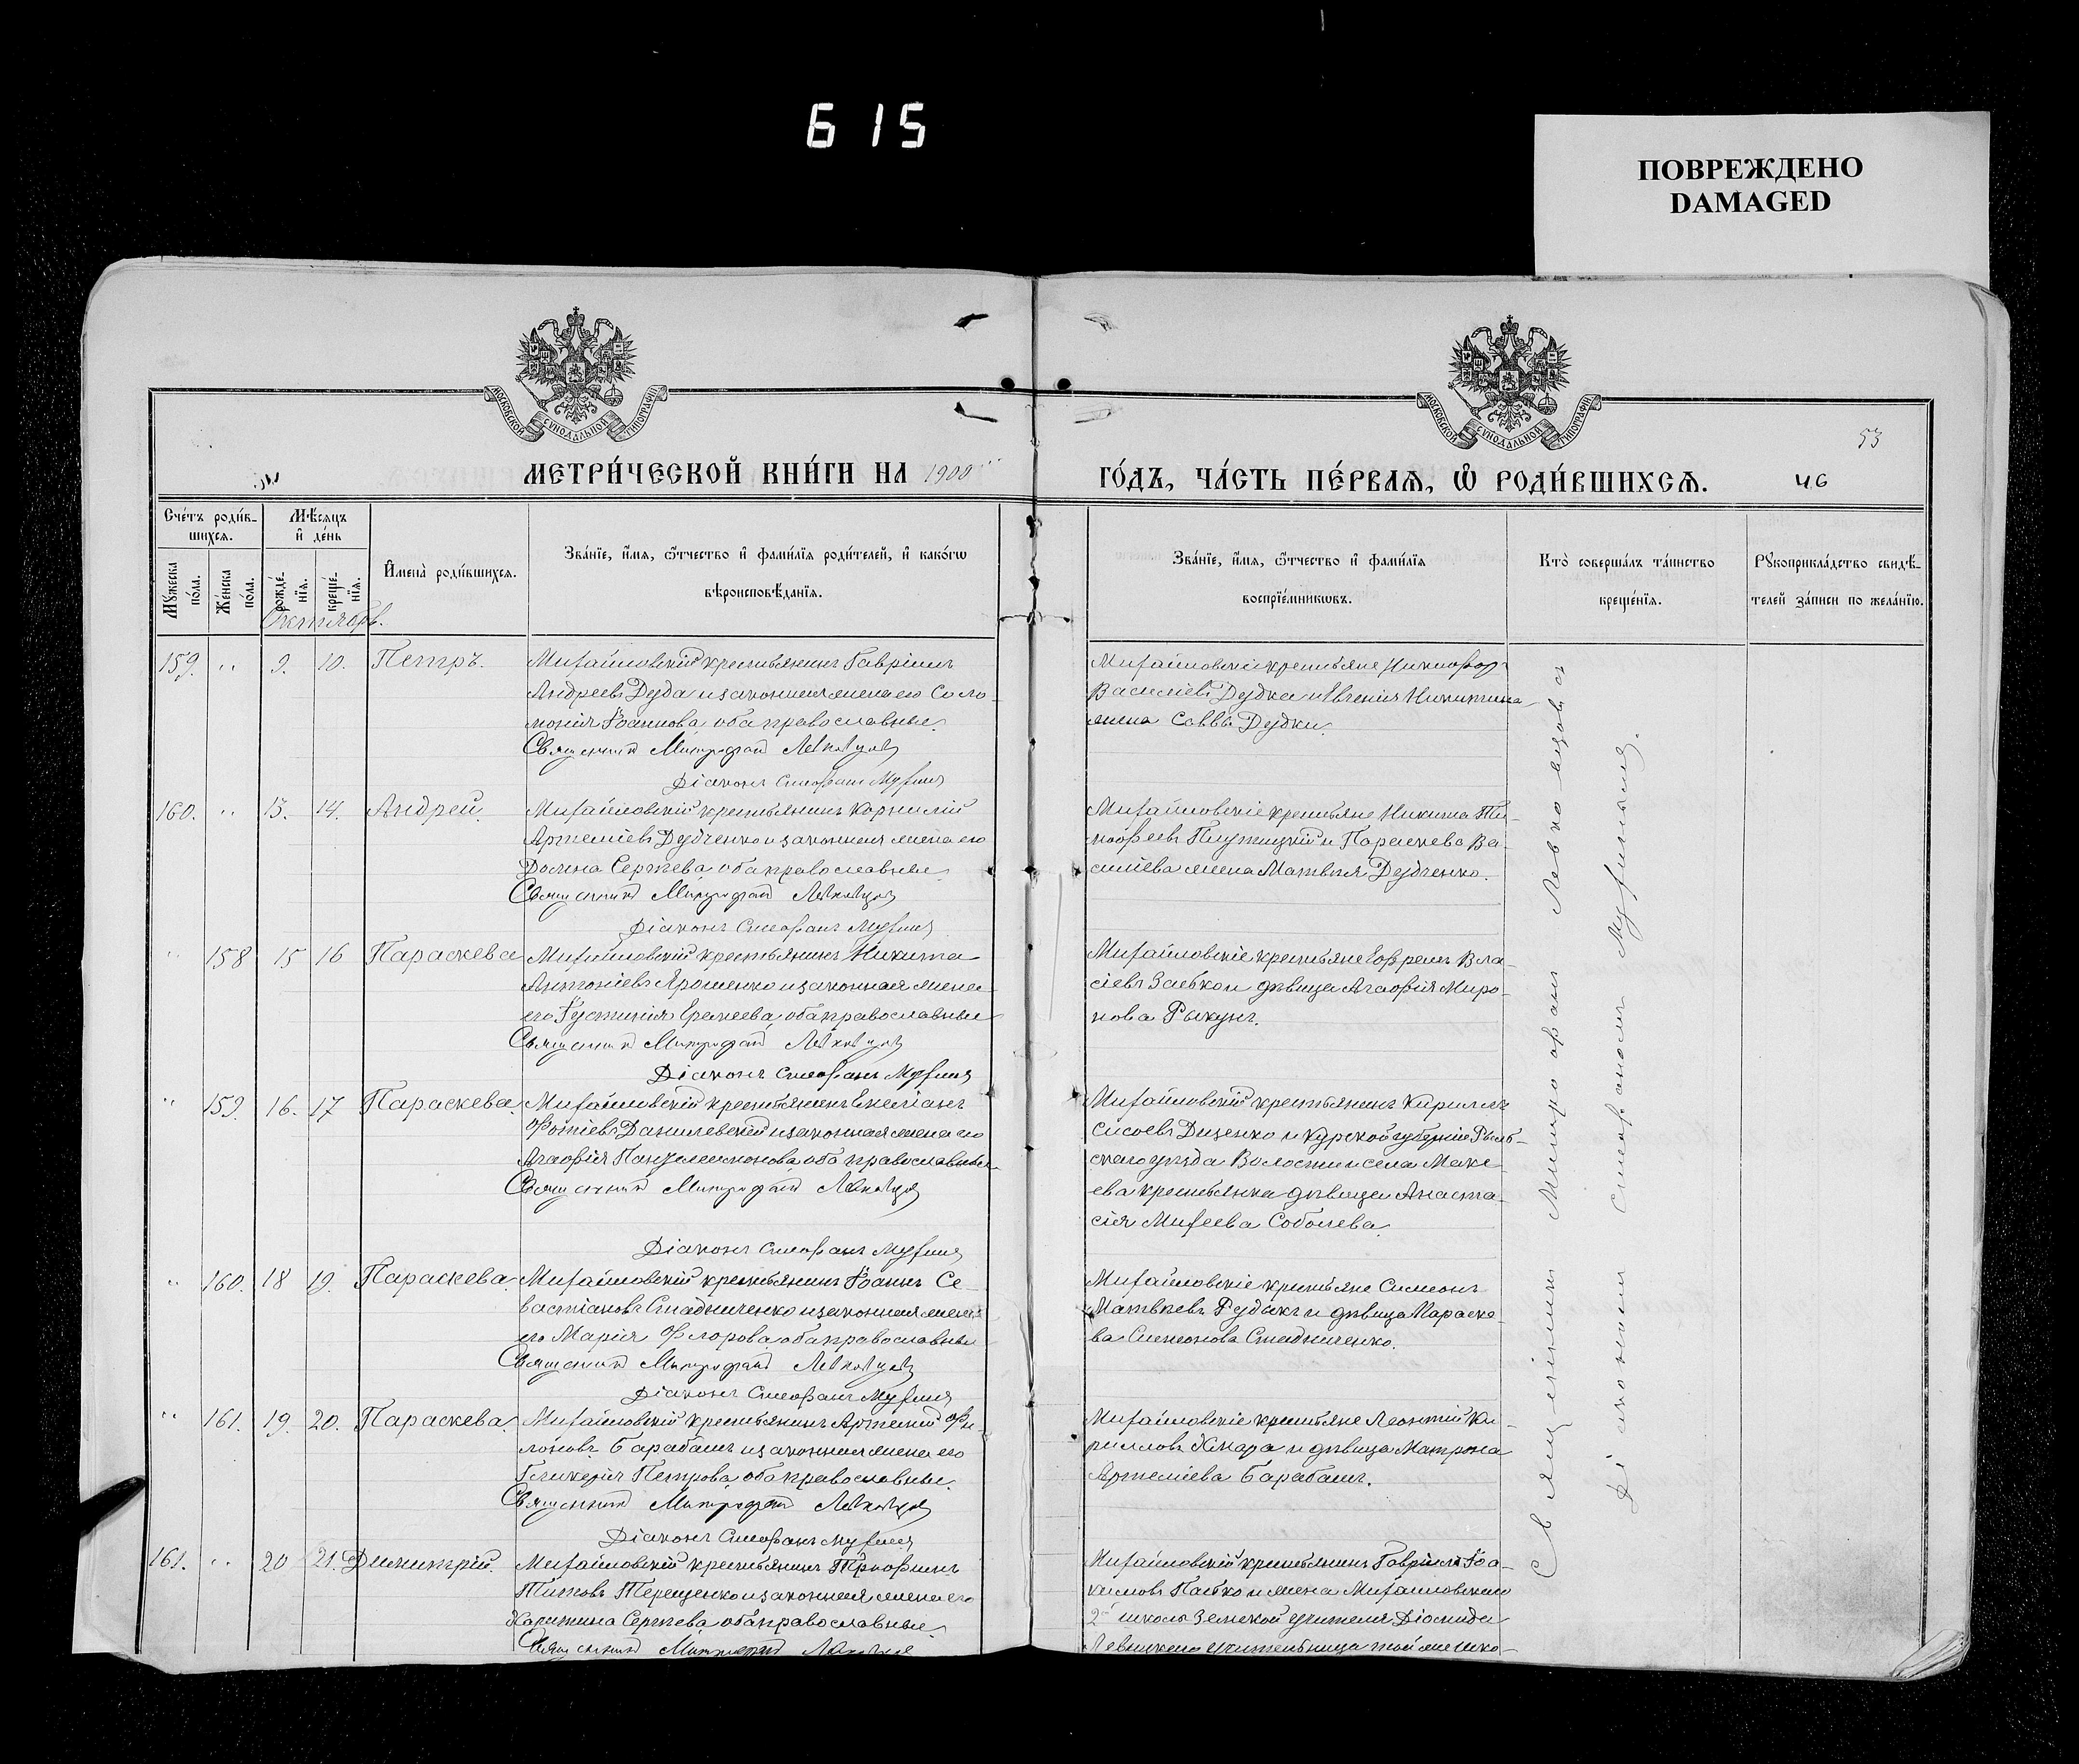 615
ПОВРЕЖДЕНО
DAMAGED
МОСКОВСКОЙ СѴНОДАЛЬНОЙ ТИПОГРАФІИ
МОСКОВСКОЙ СѴНОДАЛЬНОЙ ТИПОГРАФІИ
53
МЕТРИ́ЧЕСКОЙ КНИ́ГИ НА 1900
ГО́ДЪ, ЧА́СТЬ ПЕ́РВАѦ, Ѡ҆ РОДИ́ВШИХСѦ.
46
Сче́тъ роди́в-
шихсѧ.
Мꙋ́жеска по́ла.
Же́нска по́ла.
Мѣ́сѧцъ
и҆ де́нь
рожде́-
нїѧ.
креще́-
нїѧ.
И҆мена̀ роди́вшихсѧ.
Зва́нїе, и҆́мѧ, ѻ҆́тчество и҆ фами́лїѧ роди́телей, и҆ како́гѡ
вѣроисповѣ́данїѧ.
Зва́нїе, и҆́мѧ, ѻ҆́тчество и҆ фами́лїѧ
воспрїе́мникѡвъ.
Кто̀ соверша́лъ та́инство
креще́нїѧ.
Рꙋкоприкла́дство свидѣ́-
телей за́писи по жела́нїю.
Октябрь.
159. " 9. 10. Петръ.
Михайловскій крестьянинъ Гавріилъ
Андреевъ Дуда и законная жена его Соло-
монія Іоаннова, оба православные.
Священникъ Митрофанъ Левковцовъ
Діаконъ Стефанъ Мухинъ
Михайловскіе крестьяне Никифоръ
Василіевъ Дудка и Евгенія Никитина
жена Саввы Дудки.
160. " 13. 14. Андрей.
Михайловскій крестьянинъ Корнилій
Артеміевъ Дудченко и законная жена его
Домна Сергѣева, оба православные.
Священникъ Митрофанъ Левковцовъ
Діаконъ Стефанъ Мухинъ
Михайловскіе крестьяне Никита Ти-
моѳеевъ и Параскева Ва-
силіева жена Матвѣя Дудченко.
" 158 15 16 Параскева
Михайловскій крестьянинъ Никита
Антоніевъ Ярошенко и законная жена
его Іустинія оба православные
Священникъ Митрофанъ Левковцовъ
Діаконъ Стефанъ Мухинъ
Михайловскіе крестьяне Ефремъ Вла-
сіевъ Заѣбко и дѣвица Агафія Миро-
нова Рыкунъ.
" 159. 16. 17 Параскева.
Михайловскій крестьянинъ Емеліанъ
Фотіевъ Данилевскій и законная жена его
Агафія Пантелеимонова, оба православные
Священникъ Митрофанъ Левковцовъ
Діаконъ Стефанъ Мухинъ
Михайловскій крестьянинъ Кириллъ
Сисоевъ Диденко и Курской губерніи Рыль-
скаго уѣзда Волости и села Маке-
ева крестьянка дѣвица Анаста-
сія Михеева Соболева.
" 160. 18 19. Параскева.
Михайловскій крестьянинъ Іоаннъ Се-
вастіановъ Стадниченко и законная жена
его Марія Флорова, оба православные
Священникъ Митрофанъ Левковцовъ
Діаконъ Стефанъ Мухинъ
Михайловскіе крестьяне Симеонъ
Матвѣевъ Рудыкъ и дѣвица Параске-
ва Симеонова Стадниченко.
" 161. 19. 20. Параскева.
Михайловскій крестьянинъ Артемій Фи-
лоновъ Барабашъ и законная жена его
Гликерія Петрова, оба православные.
Священникъ Митрофанъ Левковцовъ
Діаконъ Стефанъ Мухинъ
Михайловскіе крестьяне Леонтій Ки-
рилловъ Хмара и дѣвица Матрона
Артеміева Барабашъ.
161. " 20 21. Димитрій.
Михайловскій крестьянинъ
Титовъ Терещенко и законная жена его
Харитина Сергѣева, оба православные.
Священникъ Митрофанъ Левковцовъ
Михайловскій крестьянинъ Гавріилъ Іоа-
кимовъ Пабко и жена Михайловской
2й школы Земской учителя Діомида
Левицкаго учительница той же шко-
Священникъ Митрофанъ Левковцовъ съ
Діакономъ Стефаномъ Мухинымъ.